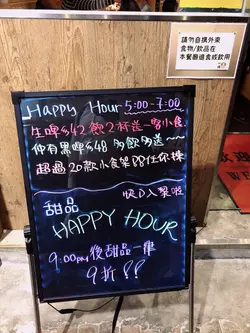 請勿自攜外來
食物/飲品在
本餐廳進食或飲用
Happy Hour 5:00-7:00
生啤$42 飲2杯送一客小食
仲有黑啤$48 多飲多送~~
超過20款小食等路任你揀
快D入黎啦
甜品
HAPPY HOUR
9:00PM後甜品一律
9折!!